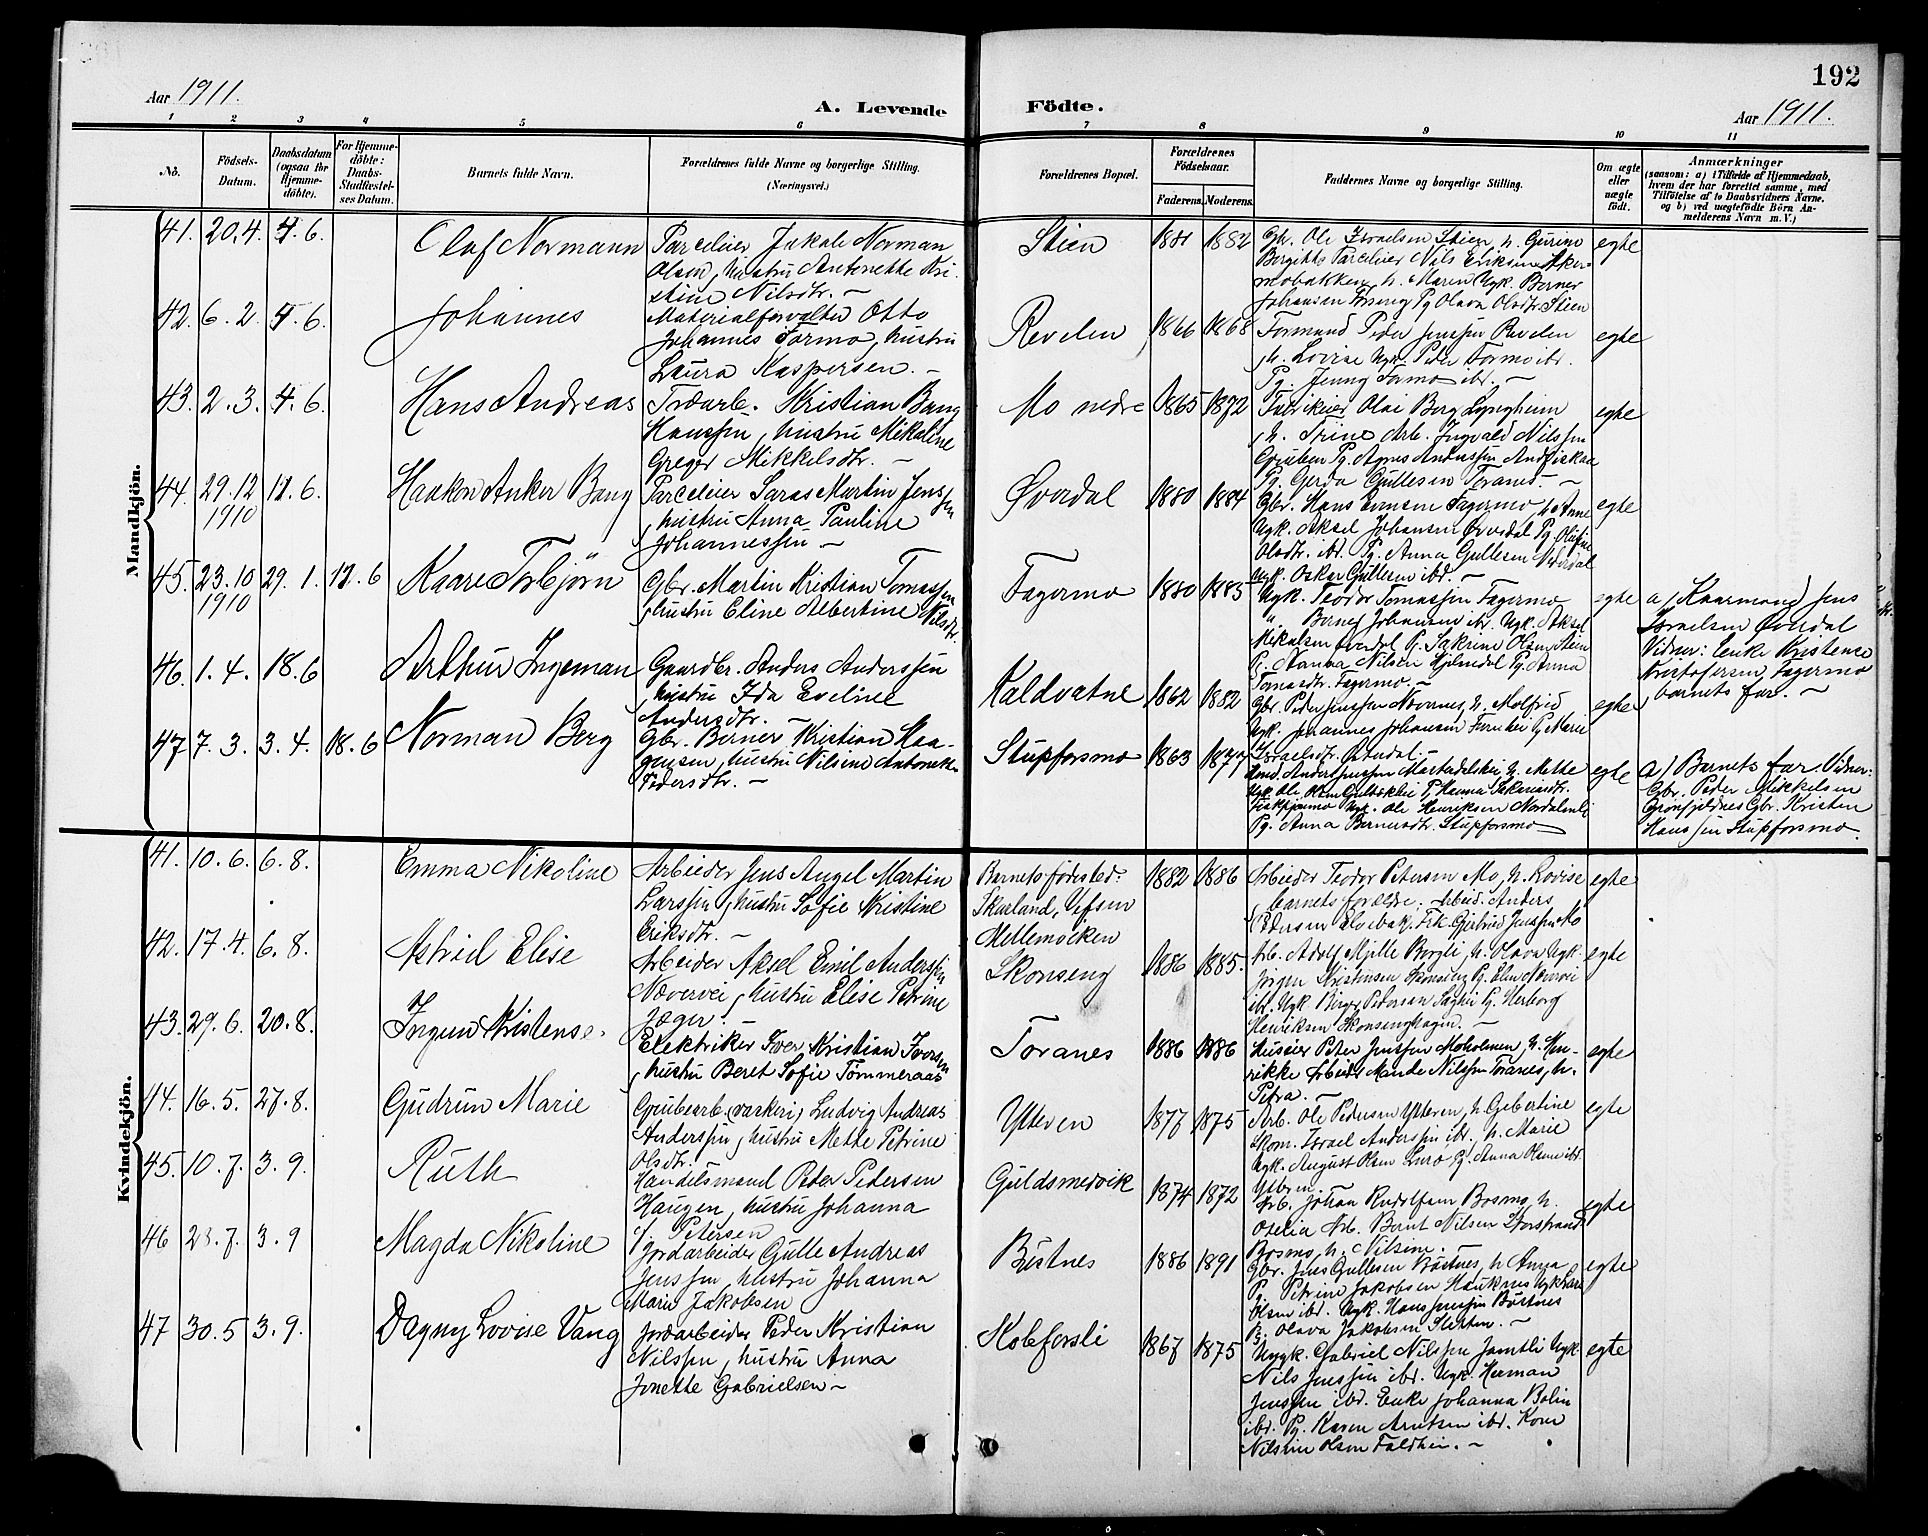 192
Aar 1911.
A. Levende Födte.
Aar 1911.
1 2 3 4 5 6 7 8 9 10 11
No.
Födsels-
Datum.
Daabsdatum
(ogsaa for
Hjemme-
döbte).
For Hjemme-
döbte:
Daabs-
Stadfæstel-
ses Datum.
Barnets fulde Navn.
Forældrenes fulde Navne og borgerlige Stilling.
(Næringsvei.)
Forældrenes Bopæl.
Forældrenes
Födselsaar.
Faderens. Moderens.
Faddernes Navne og borgerlige Stilling.
Om ægte
eller
uægte
födt.
Anmærkninger
(saasom: a) i Tilfælde af Hjemmedaab,
hvem der har forrettet samme, med
Tilföielse af to Daabsvidners Navne.
og b) ved uægtefödte Börn An-
melderens Navn m. V.)
Mandkjön.
41. 20.4. 4.6. Olaf Normann
Parcelier Jakob Norman
Olsen, hustru Antonette Kri-
stine Nilsdtr. –
Stien 1881 1882
Gbr. Ole Israelsen Stien, h. Gurine
Bergitte Parcelier Nils Eriksen Aker-
mobakken, h. Maren Ugk. Berner
Johansen Pg Olava Olsdtr. Stien
egte
42. 6.2. 4.6. Johannes
Materialforvalter Otto
Johannes Formo, hustru
Laura Kaspersen. –
Revelen 1866 1868
Formand Peder Jenssen Revelen
, h. Lovise Ugk. Peder Formo ibr.
Pg. Jenny Formo ibr. –
egte
43. 2.3. 4.6. Hans Andreas
Træarb. Kristian Bang
Hanssen, hustru Mikaline
Greger Mikkelsdtr. –
Mo nedre 1865 1872
Fabrikeier Olai Berg Lyngheim
, h. Trine Arb. Ingvald Nilssen
Gruben Pg. Agnes Anderssen Andfiskaa
Pg. Gerda Gullesen Toranes –
egte
44. 29.12 1910 11.6. Haakon Anker Bang
Parcelier Laras Martin Jenssen
, hustru Anna Pauline
Johannessen –
Øverdal 1880 1884
Gbr. Hans Evensen Fagermo h. Anne
Ugk. Aksel Johansen Øverdal Pg. Olufine
Olsdtr. ibr. Pg. Anna Gullesen
Ugk. Oskar Gullesen ibd. –
egte
45. 23.10 1910 29.1. 11.6 Kaare Torbjörn
Gbr. Martin Kristian Tomassen
, hustru Eline Albertine Nilsdtr.
Fagermo 1880 1885
Ugk. Teodor Tomassen Fagermo
" Berner Johansen ibr. Ugk. Aksel
Mikalsen Pg. Sakrine Olsen Stien
Pg. Nanna Nilsen Hjelmdal Pg. Anna
Tomasdtr. Fagermo. –
egte
a/ (Kaarmand) Jens
Israelsen Øverdal
Vidner: Enke Kristense
Kristofersen, Fagermo
, barnets far. –
46. 1.4. 18.6 Arthur Ingeman
Gaardbr. Anders Anderssen
hustru Ida Eveline
Andersdtr. –
Kaldvatne 1862 1882
Gbr. Peder Jenssen Nævernes, h. Molfrid
Ugk. Johannes Johansen Pg Marie
Israelsdtr.
egte
47 7.3. 3.4. 18.6 Norman Berg
Gbr. Berner Kristian Haa-
gensen, hustru Nilsine Antonette
Pedersdtr. –
Stupforsmo 1863 1877
Anders Jenssen h. Mette
Ugk. Ole Olsen Pg Hanna Sakariasdtr.
Ugk. Ole Henriksen Nordalenli
Pg. Anna Bernersdtr. Stupforsmo
egte
a/ Barnets far. Vidner:
Gbr. Peder Mikkelsen
Grönfjeldnes Gbr. Kristen
Hanssen Stupforsmo.
Kvindekjön.
41. 10.6. 6.8. Emma Nikoline
Arbeider Jens Angel Martin
Larssen, hustru Sofie Kristine
Eriksdtr. –
Barnets fødested:
Skarland, Vefsen
Mellemoeken
1882 1886
Arbeider Teodor Petersen Mo, h. Lovise
, barnets forældre. Arbeid. Anders
Pedersen Elvebak. Frk. Gjertrud Jenssen Mo
egte
42. 17.4. 6.8. Astrid Elise
Arbeider Aksel Emil Anderssen
Nævervei, hustru Elise Petrine
Jæger.
Skonseng 1886 1885.
Arb. Adolf Mjelle Borgli, h. Olava Ugk.
Jörgen Kristensen Skonseng Pg. Elen Nævervei
ibr. Ugk. Birger Pedersen Pg. Herborg
Henriksen Skonsenghagen. –
egte
43. 29.6. 20.8. Ingun Kristense.
Elektriker Iver Kristian Iversen
, hustru Beret Sofie Tömmeraas
Toranes 1886 1886
Huseier Peter Jenssen Moholmen, h. Hen-
rikke Arbeider Mande Nilssen Toranes, h.
Petra. –
egte
44. 16.5. 27.8. Gudrun Marie
Grubearb. (varkeri) Ludvig Andreas
Anderssen, hustru Mette Petrine
Olsdtr.
Ytteren 1877 1875
Arb. Ole Pedersen Ytteren, h. Gebertine
Skom. Israel Anderssen ibr., h. Marie
Ugk. August Olsen Lurö Pg. Anna Olsen ibr.
Ytteren –
egte
45. 10.7. 3.9. Ruth
Handelsmand Peder Pedersen
Haugen, hustru Johanna
Petersen
Guldsmedvik 1874 1872
Arb. Johan Rudolfsen Bosmo, h.
Otelia Arb. Bernt Nilsen Storstrand
Bosmo, h. Nilsine. –
egte
46 28.7. 3.9 Magda Nikoline
Jordarbeider Gulle Andreas
Jenssen, hustru Johanna
Marie Jakobsen
Bustnes 1886 1891
Gbr. Jens Gullesen Bustnes, h Anna
Pg. Petrine Jakobsen Hauknes Ugk Lars
Olsen ibr. Ugk. Hans Jenssen Bustnes
Pg. Olava Jakobsen –
egte
47 30.5 3.9. Dagny Lovise Vang
Jordarbeider Peder Kristian
Nilssen, hustru Anna
Jonette Gabrielsen –
Kobforsli 1867 1875
Ungk. Gabriel Nilssen Jamtli Ugk
Nils Jenssen ibr. Ugk. Herman
Jenssen ibr. Enke Johanna Bolin
ibr. Pg. Karen Arntsen ibr. Kone
Nilsine Olsen –
egte